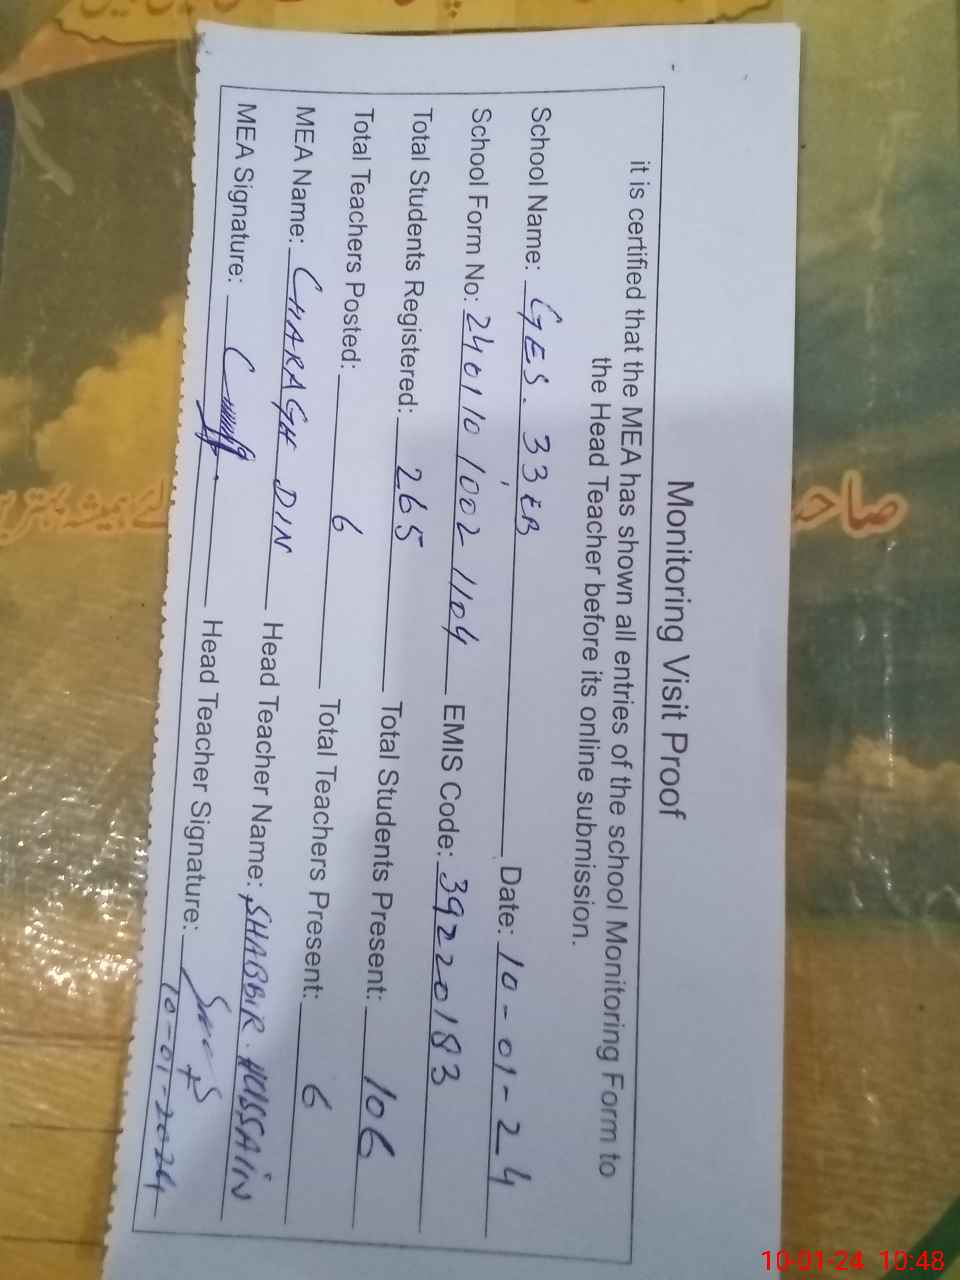 Monitoring Visit Proof
it is certified that the MEA has shown all entries of the school Monitoring Form to
the Head Teacher before its online submission.
School Name: GES. 33 EB Date: 10-01-24
School Form No: 240110 1002 1104 EMIS Code: 39220183
Total Students Registered: 265 Total Students Present: 106
Total Teachers Posted: 6 Total Teachers Present: 6
MEA Name: CHARAGH DIN Head Teacher Name: SHABBIR HUSSAIN
MEA Signature: Head Teacher Signature:
10-01-2024
صاحب
10-01-24 10:48